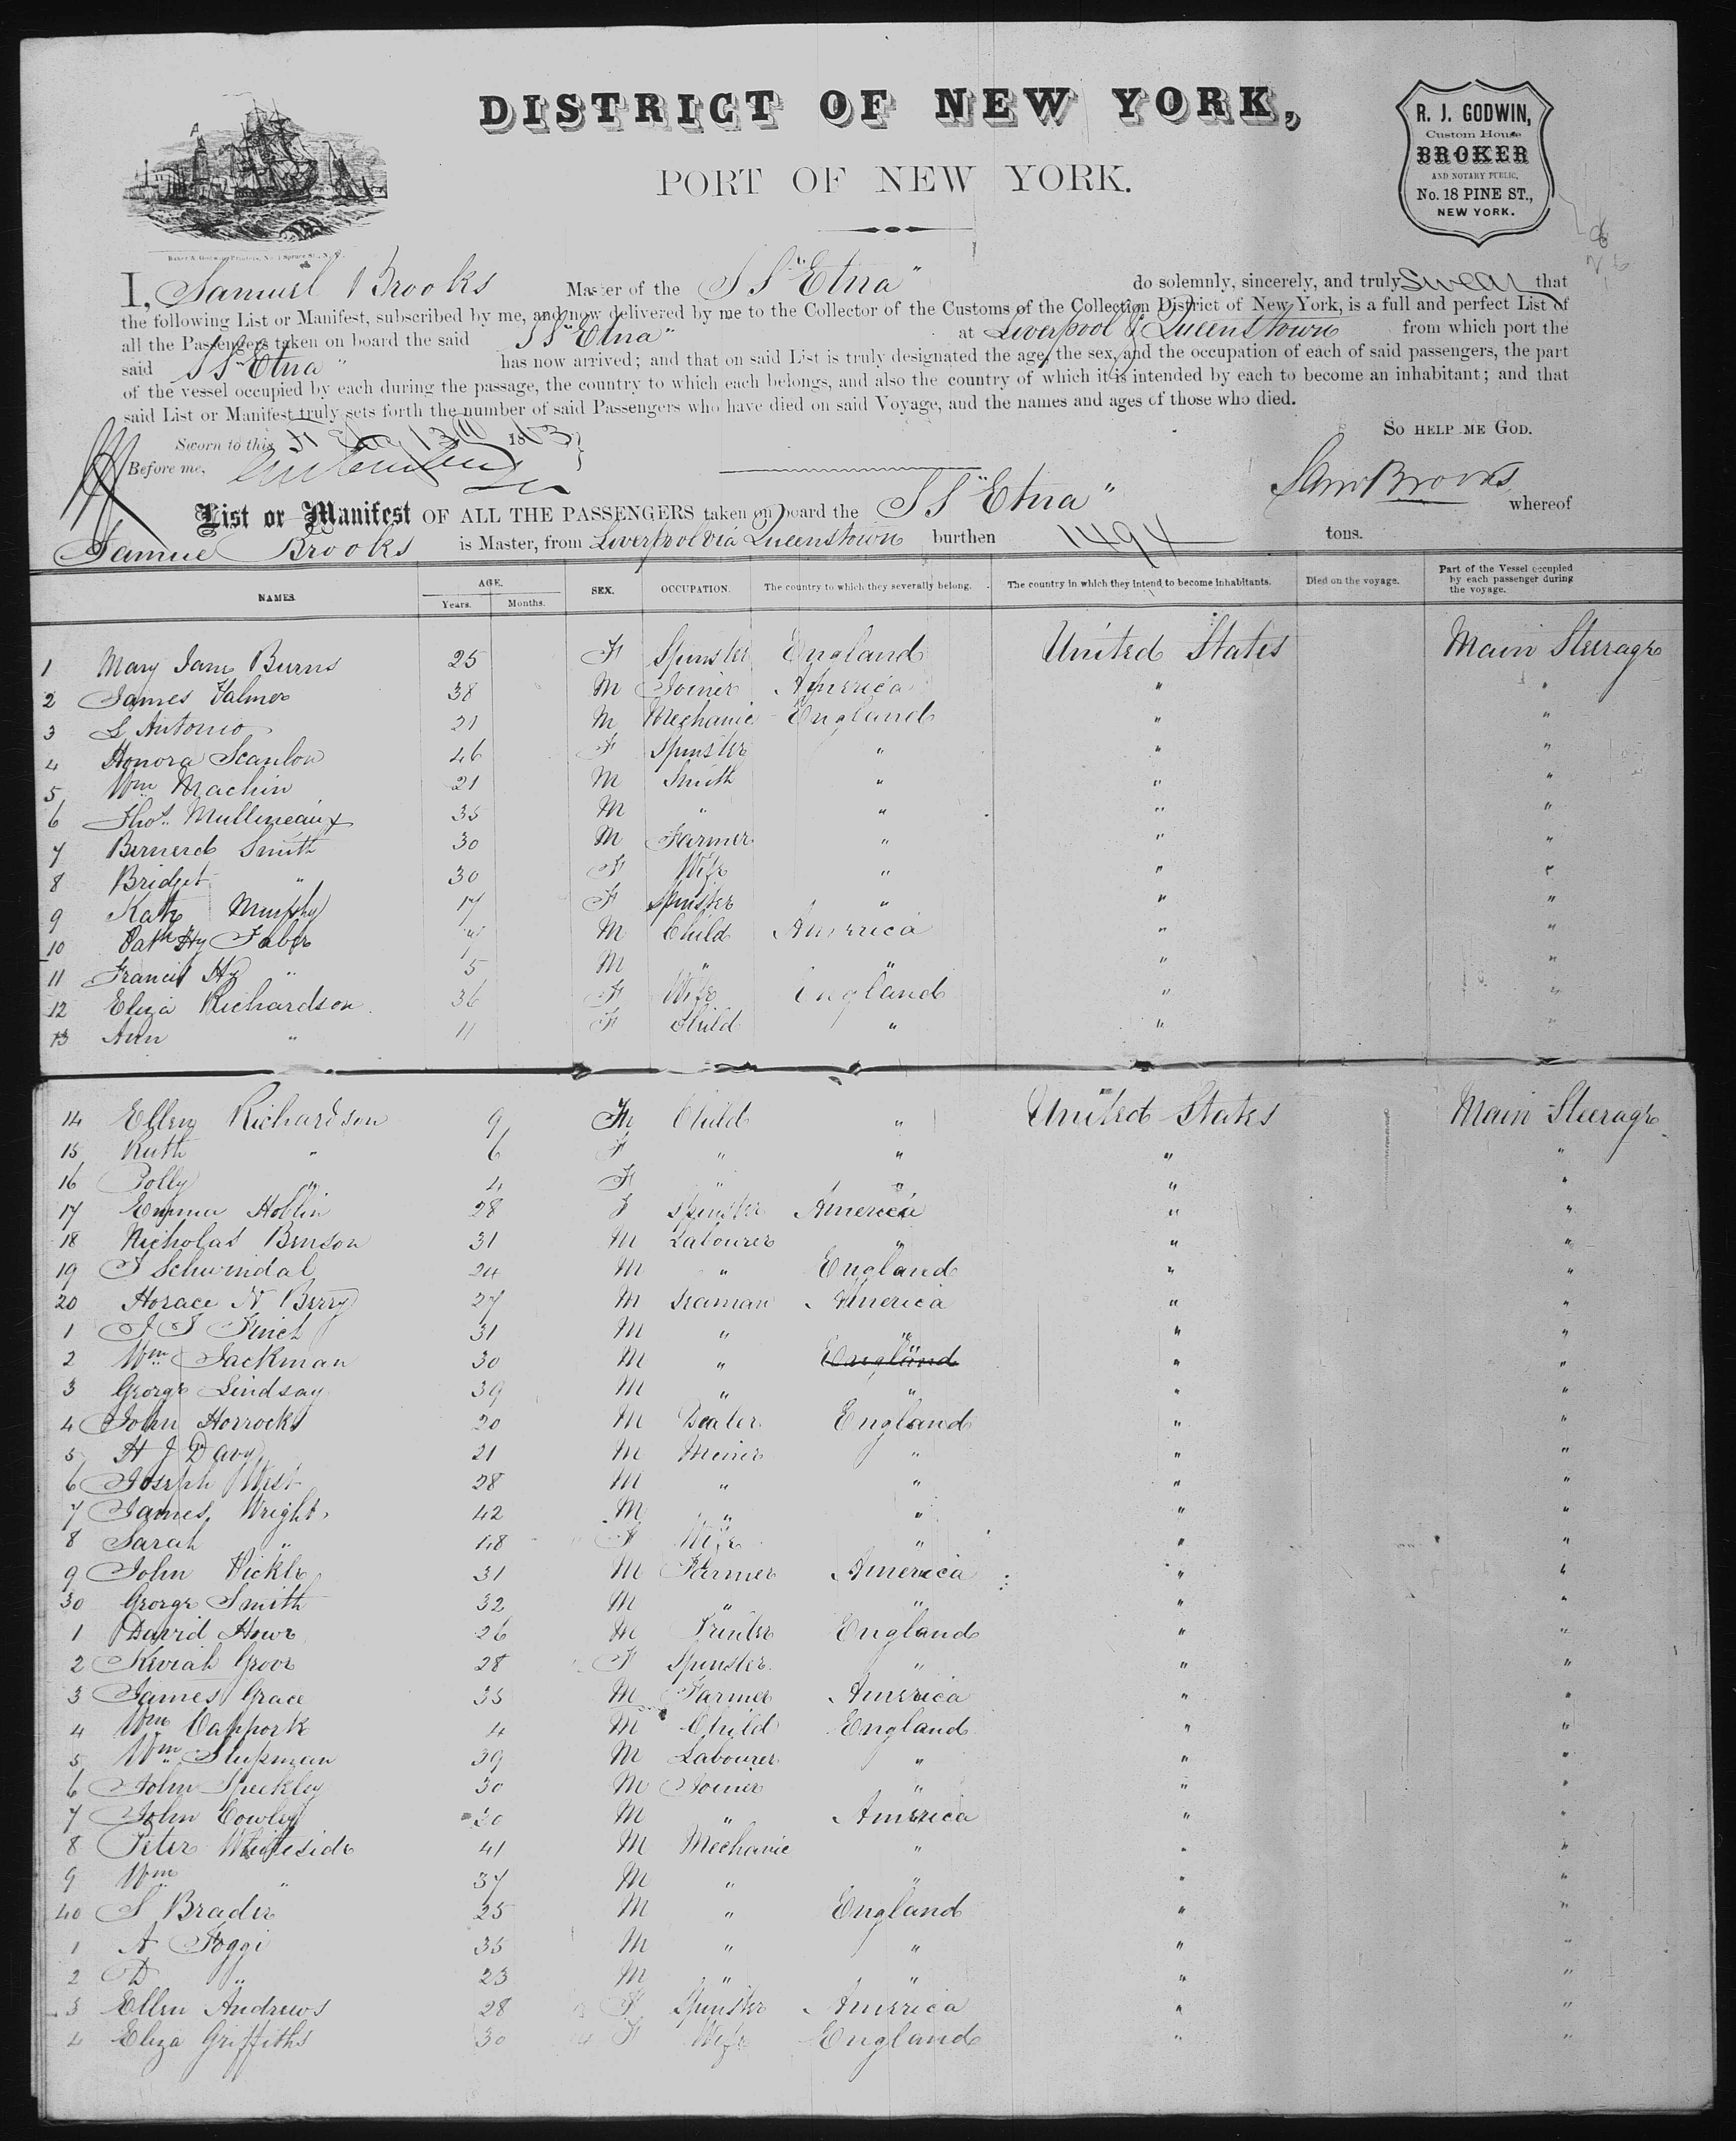 DISTRICT OF NEW YORK,
PORT OF NEW YORK.
R. J. GODWIN,
Custom House
BROKER
AND NOTARY PUBLIC,
No. 18 PINE ST.,
NEW YORK.
Baker & Godwin, Printers, No. 1 Spruce St., N. Y.
I, Samuel Brooks Master of the SS "Etna" do solemnly, sincerely, and truly Swear that
the following List or Manifest, subscribed by me, and now delivered by me to the Collector of the Customs of the Collection District of New York, is a full and perfect List of
all the Passengers taken on board the said SS "Etna" at Liverpool & Queenstown from which port the
said SS "Etna" has now arrived; and that on said List is truly designated the age, the sex, and the occupation of each of said passengers, the part
of the vessel occupied by each during the passage, the country to which each belongs, and also the country of which it is intended by each to become an inhabitant; and that
said List or Manifest truly sets forth the number of said Passengers who have died on said Voyage, and the names and ages of those who died.
Sworn to this 1863 SO HELP ME GOD.
Before me, Sam Brooks
List or Manifest OF ALL THE PASSENGERS taken on board the SS "Etna" whereof
Samuel Brooks is Master, from Liverpool via Queenstown burthen 1494 tons.
NAMES. AGE. Years. Months. SEX. OCCUPATION. The country to which they severally belong. The country in which they intend to become inhabitants. Died on the voyage. Part of the Vessel occupied by each passenger during the voyage.
1 Mary Jane Burns 25 F Spinster England United States Main Steerage
2 James Palmer 38 M Joiner America " "
3 L Antonio 21 M Mechanic England " "
4 Honora Scanlon 46 F Spinster " " "
5 Wm Machin 21 M Smith " " "
6 Thos Mullineaux 35 M " " " "
7 Bernerd Smith 30 M Farmer " " "
8 Bridget " 30 F Wife " " "
9 Kate Murphy 17 F Spinster " " "
10 Hy Faber M Child America " "
11 Francis Hy " 5 M " " " "
12 Eliza Richardson 36 F Wife England " "
13 Ann " 11 F Child " " "
14 Ellen Richardson 9 F Child " United States Main Steerage
15 Ruth " 6 F " " " "
16 Polly " 4 F " " " "
17 Emma Hoblin 28 F Spinster America " "
18 Nicholas Benson 31 M Labourer " " "
19 J Schwindal 24 M " England " "
20 Horace N Berry 27 M Seaman America " "
1 J J Finch 31 M " " " "
2 Wm Jackman 30 M " England " " "
3 George Lindsay 39 M " " " "
4 John Horrocks 20 M Dealer England " "
5 H J Davy 21 M Meiner " " "
6 Joseph West 28 M " " " "
7 James Wright 42 M " " " "
8 Sarah " 48 F Wife " " "
9 John Pickle 31 M Farmer America " "
30 George Smith 32 M " " " "
1 David Howe 26 M Printer England " "
2 Keziah Groor 28 F Spinster " " "
3 James Grace 35 M Farmer America " "
4 Wm Cappork 4 M Child England " "
5 Wm Slupman 39 M Labourer " " "
6 John Speckley 30 M Joiner " " "
7 John Cowley 30 M " America " "
8 Peter Whiteside 41 M Mechanic " " "
9 Wm " 37 M " " " "
40 S Brader 25 M " England " "
1 A Foggi 35 M " " " "
2 D " 23 M " " " "
3 Ellen Andrews 28 F Spinster America " "
4 Eliza Griffiths 30 F Wife England " "